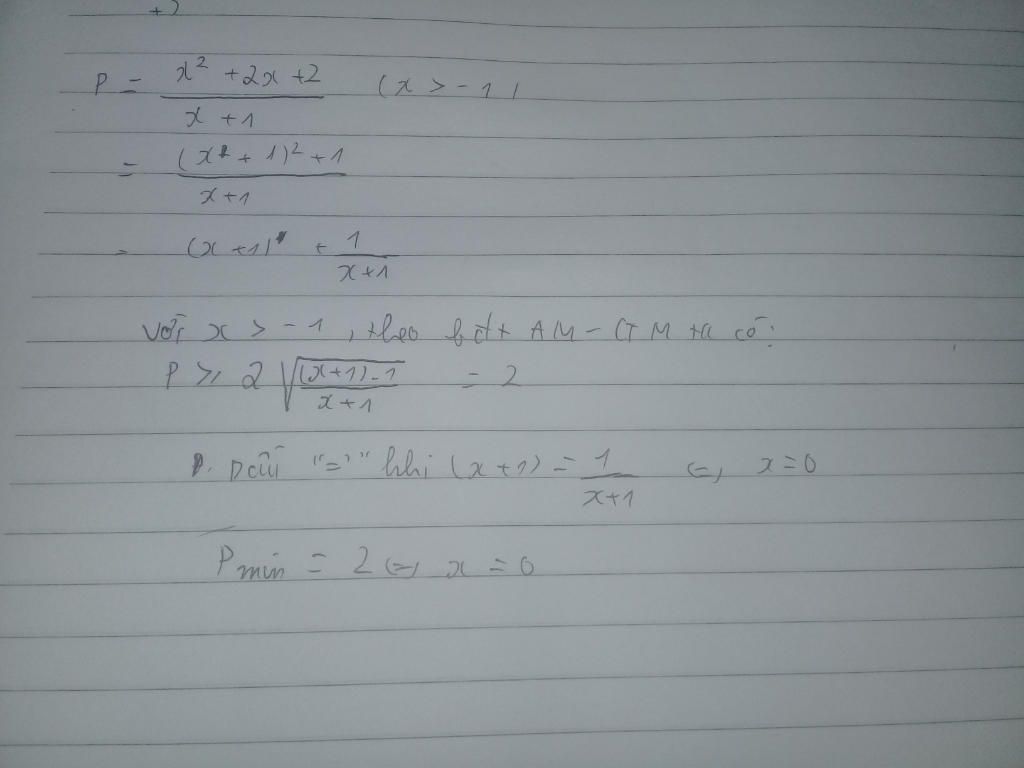 +)
P = \frac{x^2 + 2x + 2}{x + 1} (x > -1)
= \frac{(x + 1)^2 + 1}{x + 1}
= (x + 1) + \frac{1}{x + 1}
Với x > -1, theo bđt AM - GM ta có:
P ≥ 2 \sqrt{\frac{(x + 1) \cdot 1}{x + 1}} = 2
Dấu "=" khi (x + 1) = \frac{1}{x + 1} <=> x = 0
P min = 2 <=> x = 0